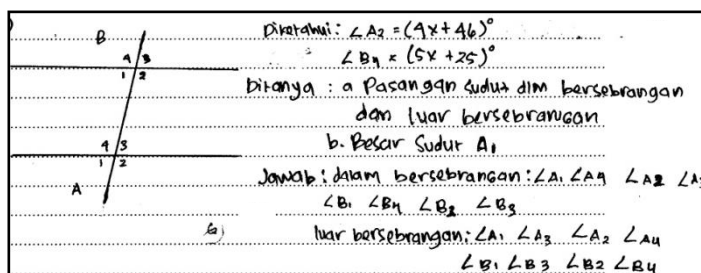 B
4 3
1 2
4 3
1 2
A
Diketahui: ∠A2 = (4x+46)°
∠B4 = (5x+25)°
Ditanya : a Pasangan sudut dlm bersebrangan
dan luar bersebrangan
b. Besar sudut A1
Jawab: dalam bersebrangan: ∠A1 ∠A4 ∠A2 ∠A3
∠B1 ∠B4 ∠B2 ∠B3
luar bersebrangan: ∠A1 ∠A3 ∠A2 ∠A4
∠B1 ∠B3 ∠B2 ∠B4